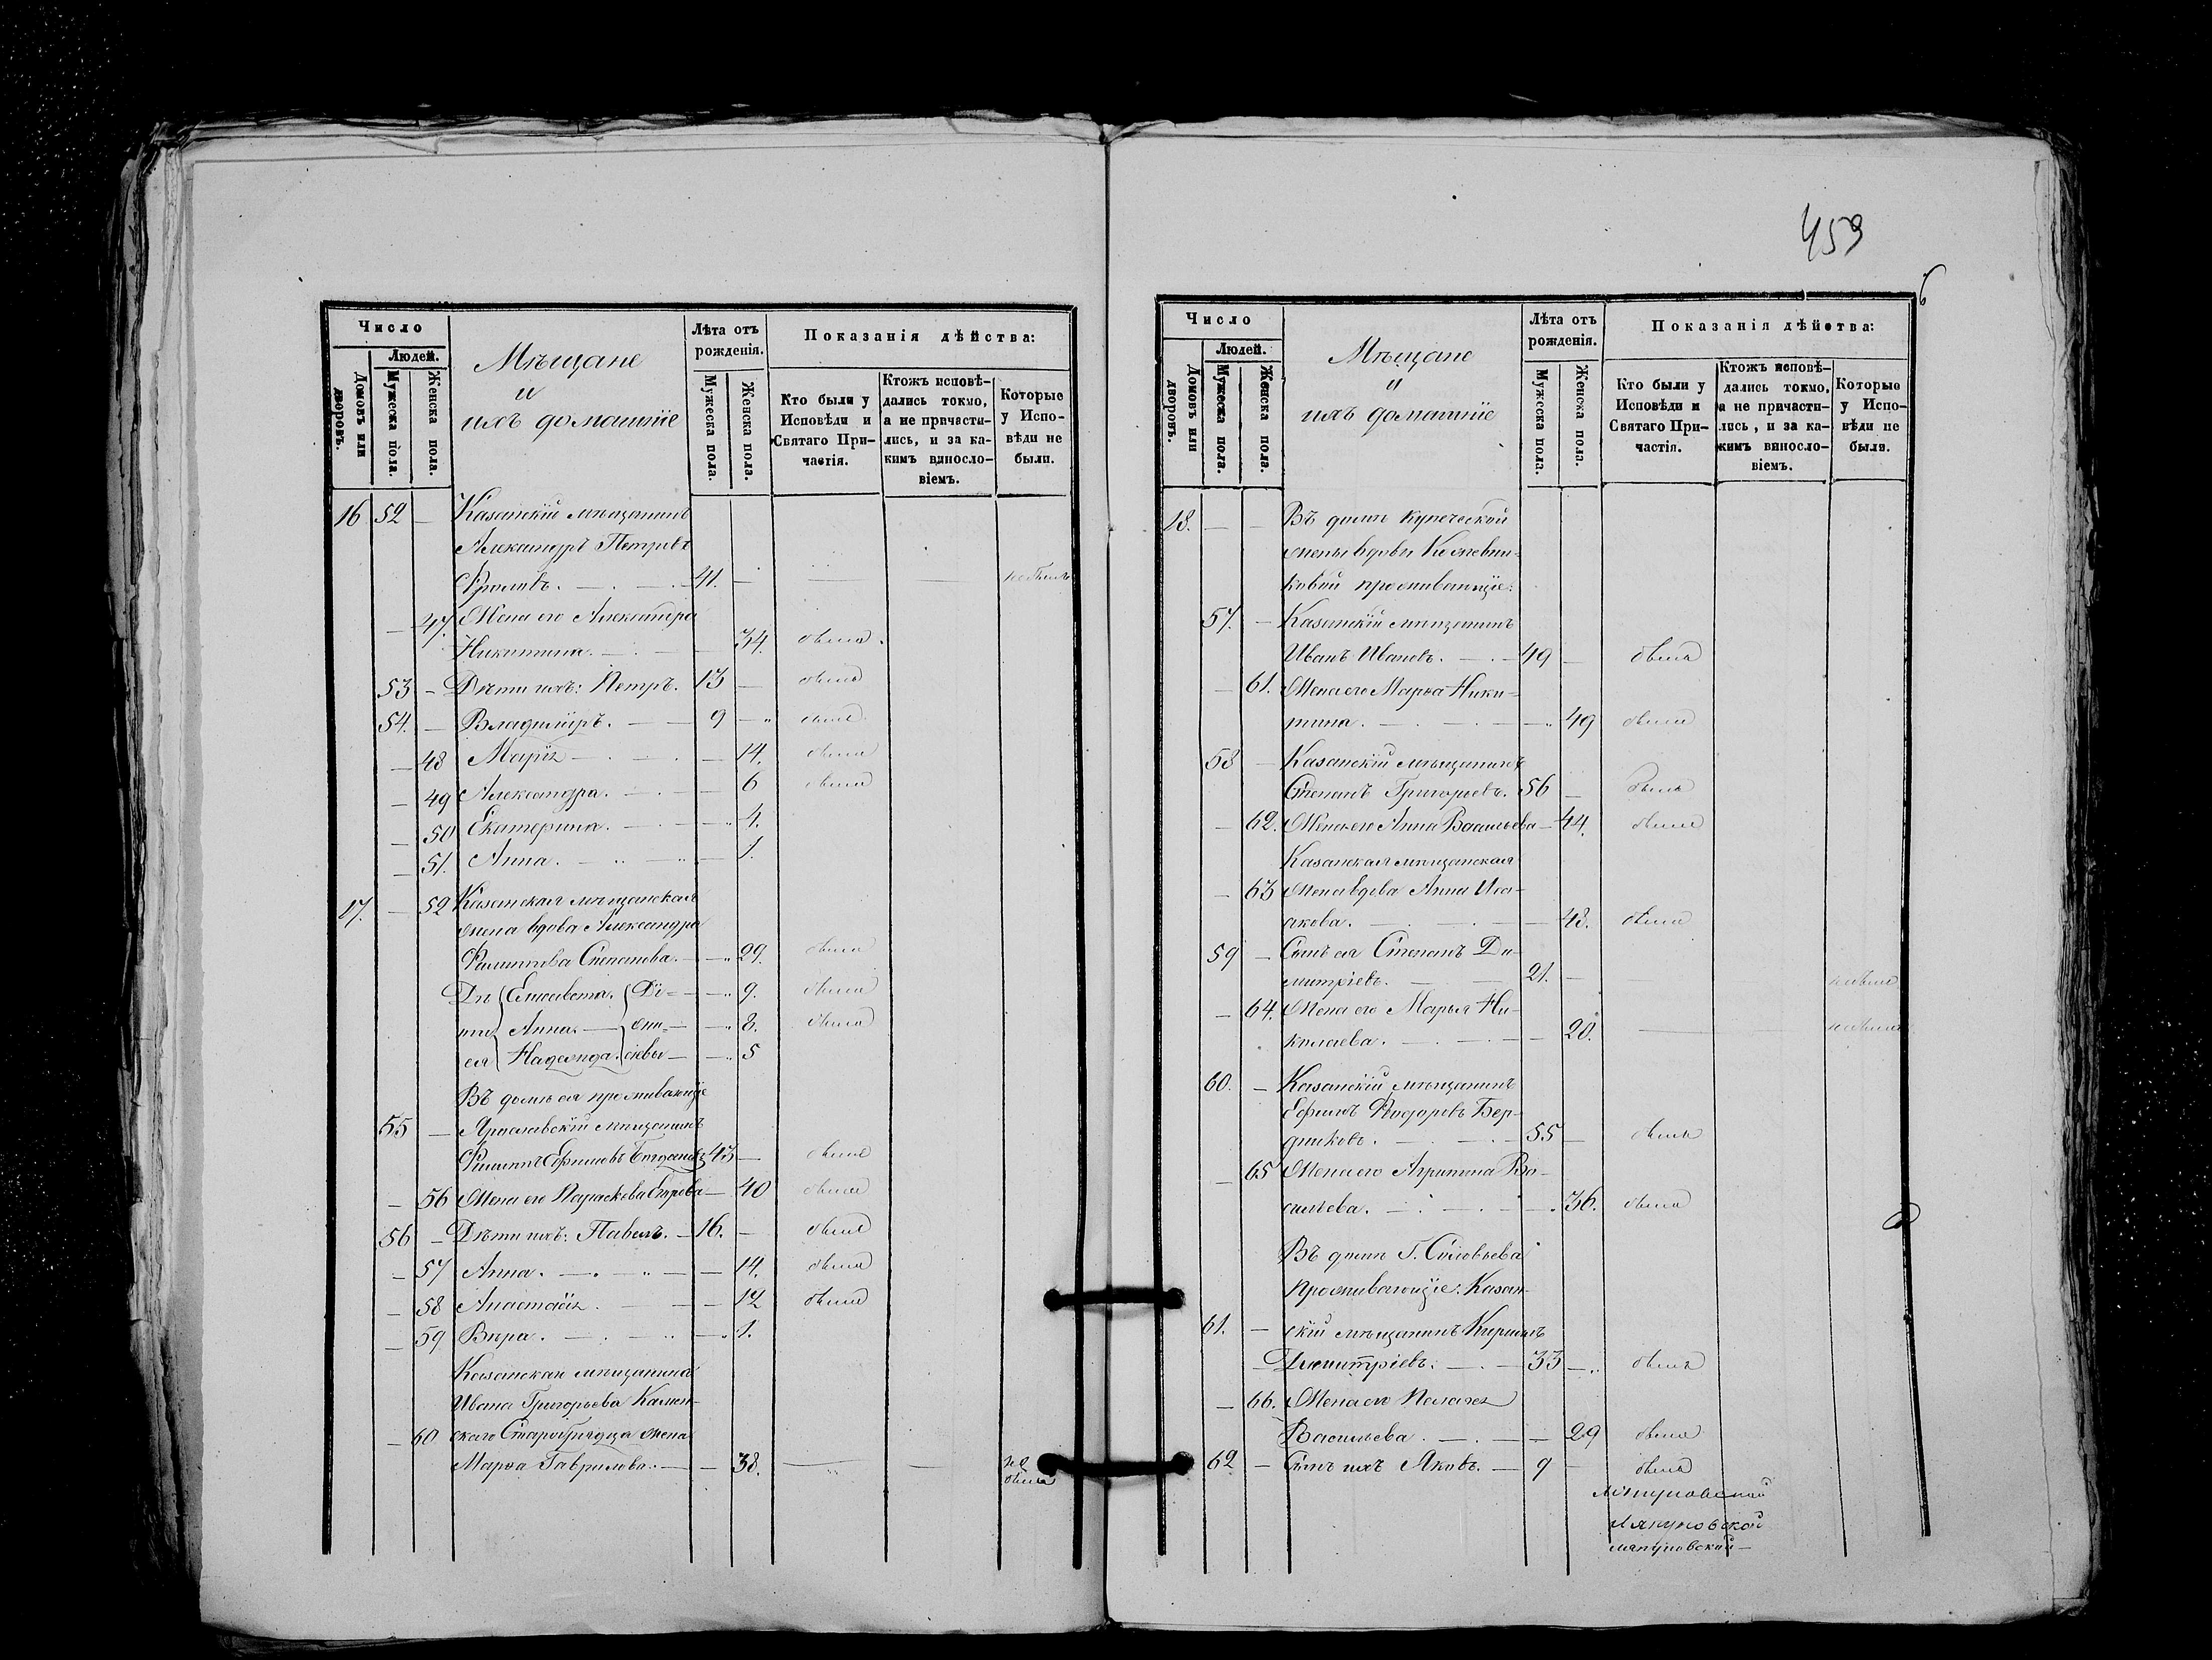 459
6
Число
Людей.
Домовъ или дворовъ.
Мужеска пола.
Женска пола.
Мѣщане
и
ихъ домашніе
Лѣта отъ рожденія.
Мужеска пола.
Женска пола.
Показанія дѣйства:
Кто были у Исповѣди и Святаго Причастія.
Ктожъ исповѣдались токмо, а не причастились, и за какимъ винословіемъ.
Которые у Исповѣди не были.
16 52 — Казанскій мѣщанинъ
Александръ Петровъ
Фроловъ. — 41. — не былъ
— 47. Жена его Александра
Никитина. — 34. была
53 — Дѣти ихъ: Петръ. 13 — былъ
54. — Владиміръ. — 9 — былъ
— 48 Марія — 14. была
— 49 Александра. — 6 была
— 50 Екатерина. — 4.
— 51. Анна. — 1.
17. — 52 Казанская мѣщанская
жена вдова Александра
Филиппова Степанова. — 29. была
Дѣ Елисавета. Ді- — 9. была
ти Анна. — они- — 8. была
ея Надежда. сіевы — 5
Въ домѣ ея проживающіе
55 — Ярославскій мѣщанинъ
Филиппъ Ефимовъ 43 — былъ
— 56 Жена его Параскева Егорова — 40 была
56 — Дѣти ихъ: Павелъ. — 16. — былъ
— 57 Анна. — 14. была
— 58 Анастасія. — 12 была
— 59 Вѣра. — 1.
Казанскаго мѣщанина
Ивана Григорьева Камен-
— 60 скаго Старообрядца жена
Марѳа Гаврилова. — 38. — не
была
Число
Людей.
Домовъ или дворовъ.
Мужеска пола.
Женска пола.
Мѣщане
и
ихъ домашніе
Лѣта отъ рожденія.
Мужеска пола.
Женска пола.
Показанія дѣйства:
Кто были у Исповѣди и Святаго Причастія.
Ктожъ исповѣдались токмо, а не причастились, и за какимъ винословіемъ.
Которые у Исповѣди не были.
18. — — Въ домѣ купеческой
жены вдовы Кожевни-
ковой проживающіе:
57. — Казанскій мѣщанинъ
Иванъ Ивановъ. — 49 — былъ
— 61. Жена его Марѳа Ники-
тина. — 49 была
58 — Казанскій мѣщанинъ
Степанъ Григорьевъ. 56 — былъ
— 62. Жена его Анна Васильева — 44. была
Казанская мѣщанская
— 63 жена вдова Анна Иса-
акова. — 48. была
59 — Сынъ ея Степанъ Ди-
митріевъ. 21. — не былъ
— 64. Жена его Марья Ни-
колаева. — 20. — не была
60. — Казанскій мѣщанинъ
Ефимъ Ѳедоровъ Бер-
дниковъ. — 55 — былъ
— 65 Жена его Агрипина Ва-
сильева. — 36. была
Въ домѣ Г. Соловьева
проживающіе: Казан-
61. — скій мѣщанинъ Кирилъ
Димитріевъ. — 33 — былъ
— 66. Жена его Пелагея
Васильева. — 29 была
62 — Сынъ ихъ Яковъ. — 9 — былъ
Ляпуновской
Ляпуновской